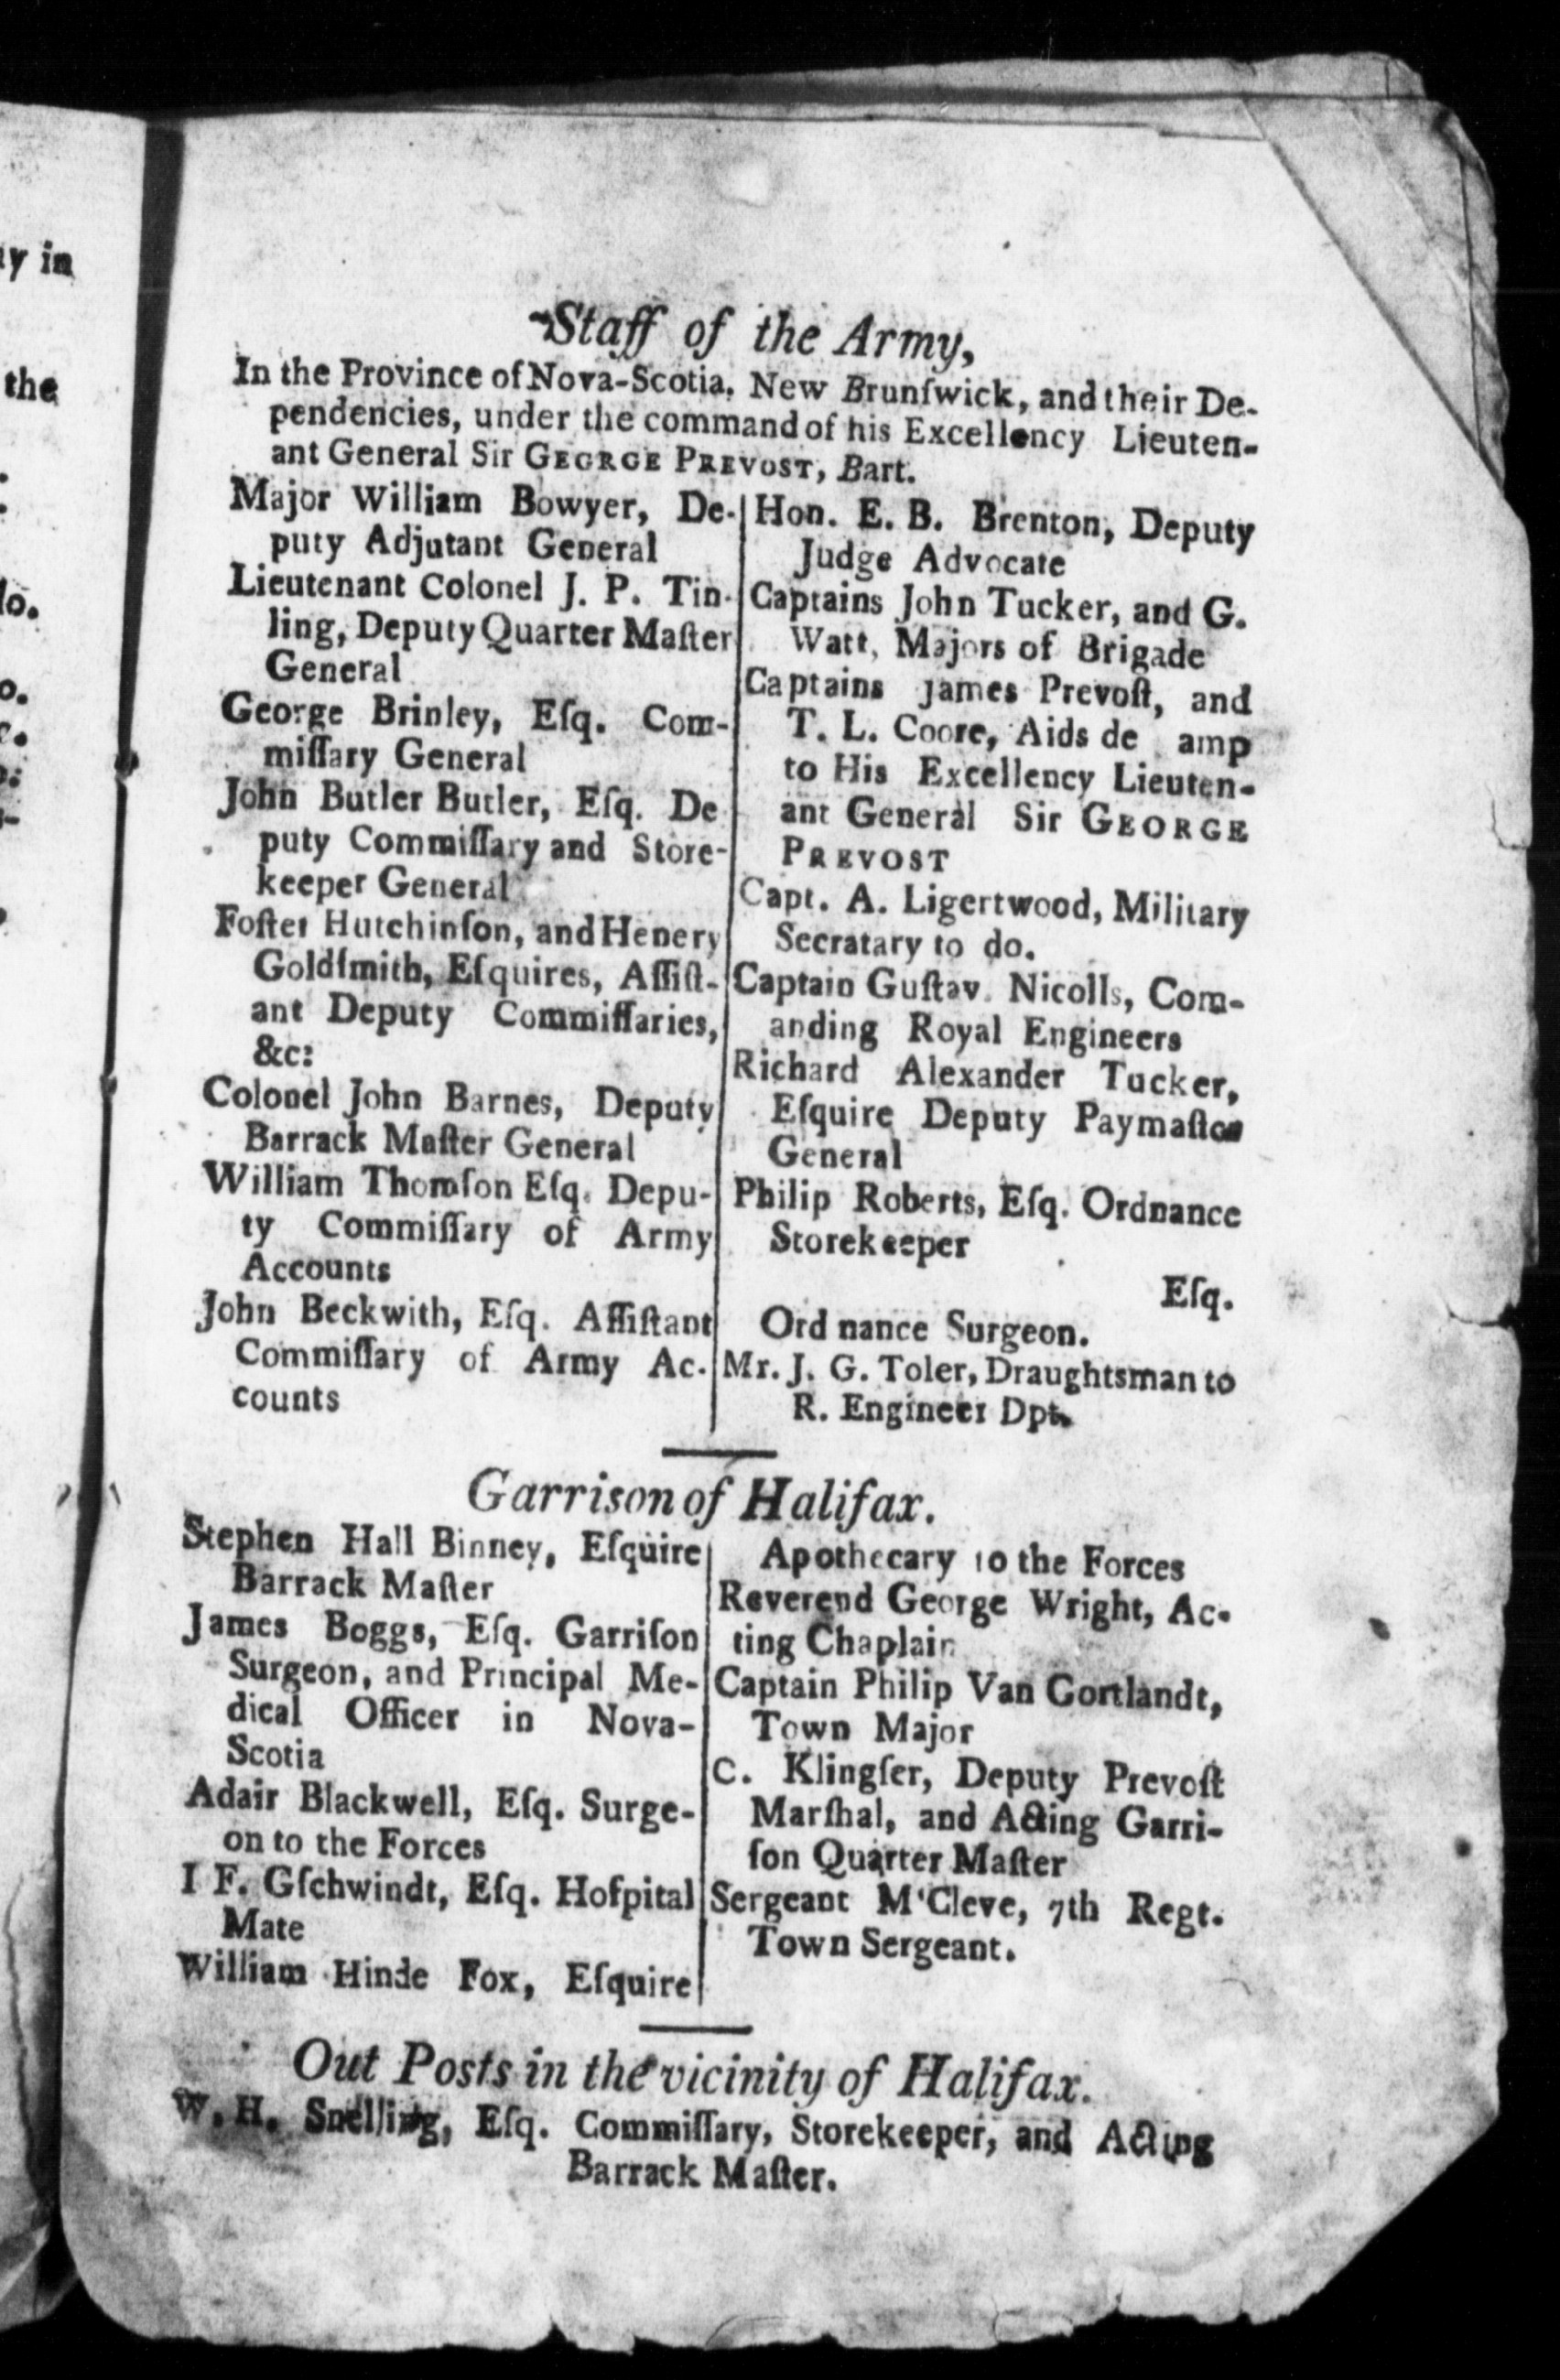 ay in
the
do.
Staff of the Army,
In the Province of Nova-Scotia, New Brunſwick, and their De-
pendencies, under the command of his Excellency Lieuten-
ant General Sir GEORGE PREVOST, Bart.
Major William Bowyer, De-
puty Adjutant General
Lieutenant Colonel J. P. Tin-
ling, Deputy Quarter Maſter
General
George Brinley, Eſq. Com-
miſſary General
John Butler Butler, Eſq. De
puty Commiſſary and Store-
keeper General
Foſter Hutchinſon, and Henery
Goldſmith, Eſquires, Aſſiſt-
ant Deputy Commiſſaries,
&c:
Colonel John Barnes, Deputy
Barrack Maſter General
William Thomſon Eſq. Depu-
ty Commiſſary of Army
Accounts
John Beckwith, Eſq. Aſſiſtant
Commiſſary of Army Ac-
counts
Hon. E. B. Brenton, Deputy
Judge Advocate
Captains John Tucker, and G.
Watt, Majors of Brigade
Captains James Prevoſt, and
T. L. Coore, Aids de amp
to His Excellency Lieuten-
ant General Sir GEORGE
PREVOST
Capt. A. Ligertwood, Military
Secratary to do.
Captain Guſtav. Nicolls, Com-
anding Royal Engineers
Richard Alexander Tucker,
Eſquire Deputy Paymaſter
General
Philip Roberts, Eſq. Ordnance
Storekeeper
Eſq.
Ord nance Surgeon.
Mr. J. G. Toler, Draughtsman to
R. Engineer Dpt.
Garrison of Halifax.
Stephen Hall Binney, Eſquire
Barrack Maſter
James Boggs, Eſq. Garriſon
Surgeon, and Principal Me-
dical Officer in Nova-
Scotia
Adair Blackwell, Eſq. Surge-
on to the Forces
I F. Gſchwindt, Eſq. Hoſpital
Mate
William Hinde Fox, Eſquire
Apothecary to the Forces
Reverend George Wright, Ac-
ting Chaplain
Captain Philip Van Cortlandt,
Town Major
C. Klingſer, Deputy Prevoſt
Marſhal, and Acting Garri-
ſon Quarter Maſter
Sergeant M'Cleve, 7th Regt.
Town Sergeant.
Out Posts in the vicinity of Halifax.
W. H. Snelling, Eſq. Commiſſary, Storekeeper, and Acting
Barrack Maſter.